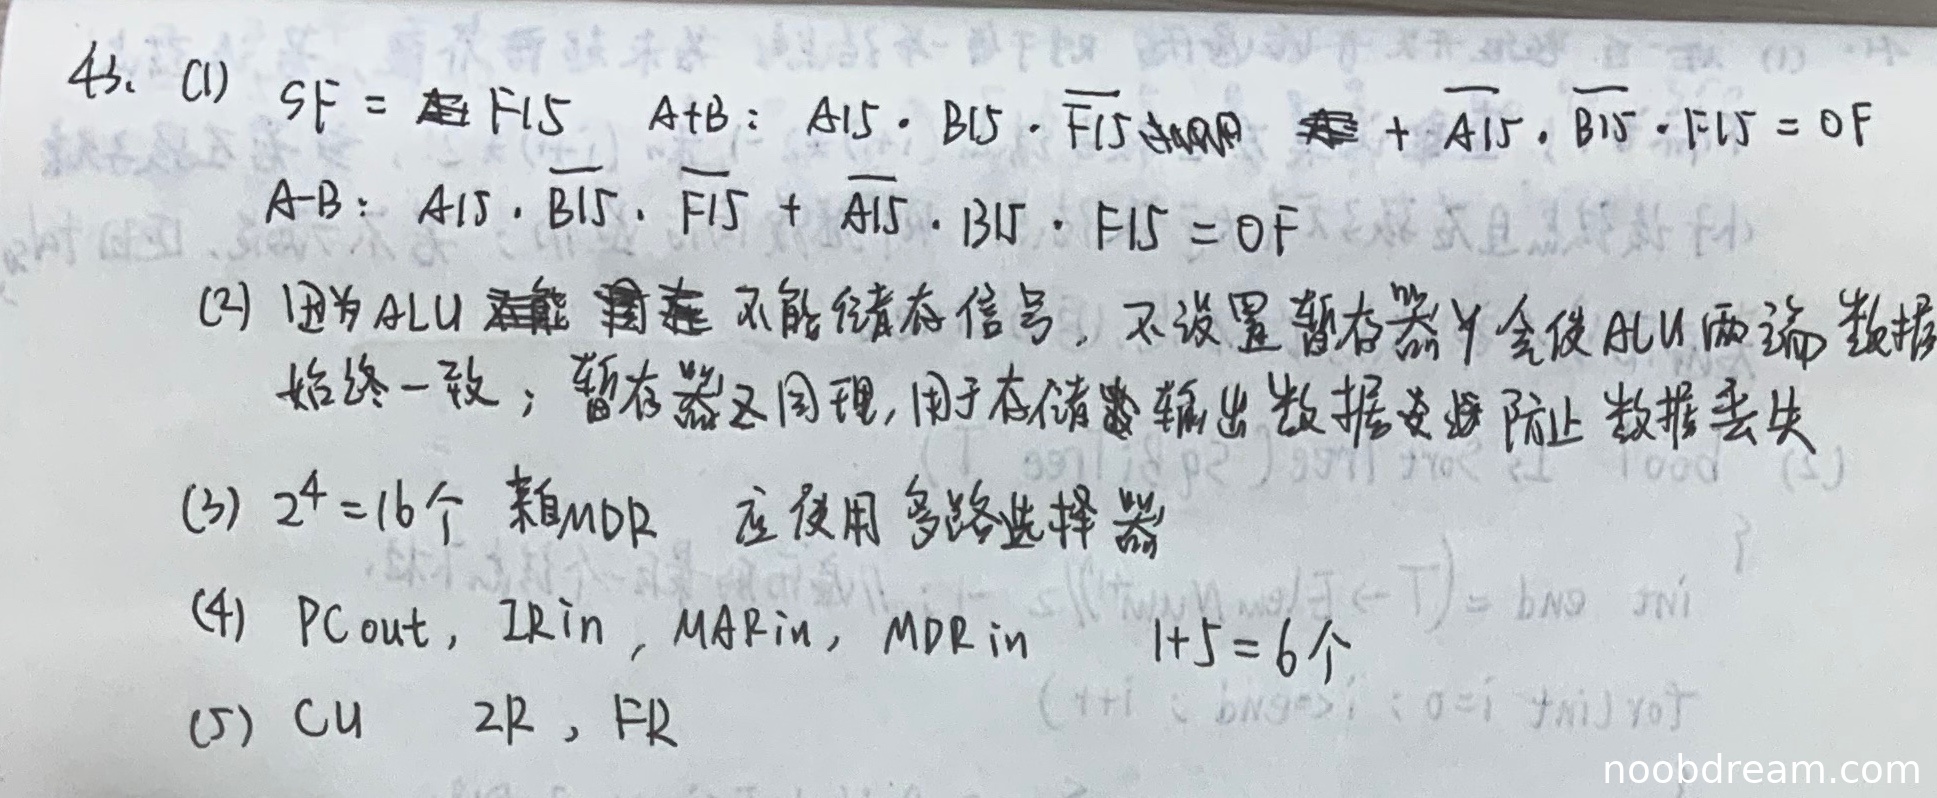 43. (1) SF = F15 A+B: A15 · B15 · F̅1̅5̅ + A̅1̅5̅ · B̅1̅5̅ · F15 = OF
A-B: A15 · B̅1̅5̅ · F̅1̅5̅ + A̅1̅5̅ · B15 · F15 = OF
(2) 因为ALU 不能储存信号, 不设置暂存器Y会使ALU两端数据
始终一致; 暂存器Z同理, 用于存储输出数据 防止数据丢失
(3) 2⁴=16个 来自MDR 应使用多路选择器
(4) PCout, IRin, MARin, MDRin 1+5=6个
(5) CU IR, FR
noobdream.com